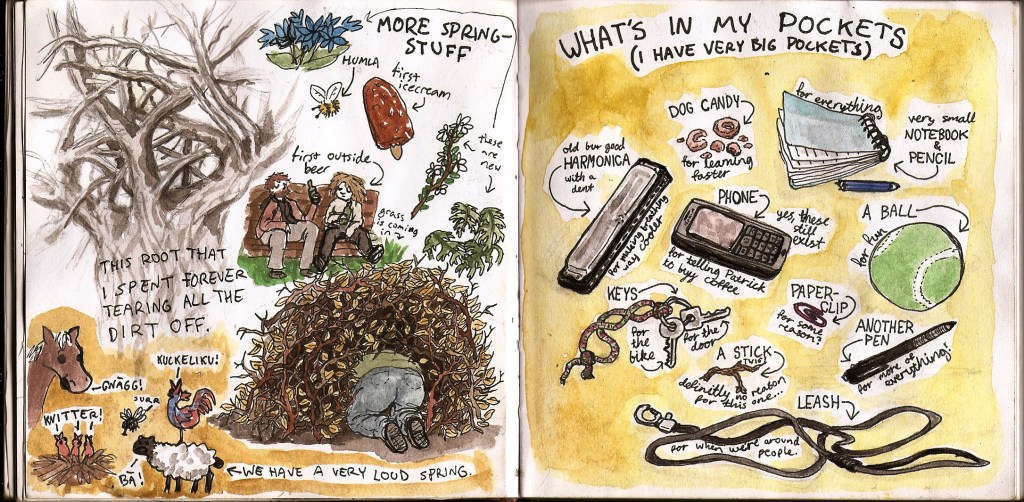 MORE SPRING-
STUFF
HUMLA
first
icecream
these
are
new
first outside
beer
grass
is coming
in
THIS ROOT THAT
I SPENT FOREVER
TEARING ALL THE
DIRT OFF.
GNÄGG!
KUCKELIKU!
SURR
KVITTER!
BÄ!
WE HAVE A VERY LOUD SPRING.
WHAT'S IN MY POCKETS
(I HAVE VERY BIG POCKETS)
DOG CANDY
for learning
faster
for everything
very small
NOTEBOOK
&
PENCIL
old but good
HARMONICA
with a
dent
for making breathing
way cooler
PHONE
yes, these
still
exist
for telling Patrick
to buy coffee
A BALL
for fun
KEYS
for
the
bike
for the
door
PAPER-
CLIP
for some
reason?
ANOTHER
PEN
for more of
everything!
A STICK
definitly no reason
for this one...
LEASH
for when we're around
people.